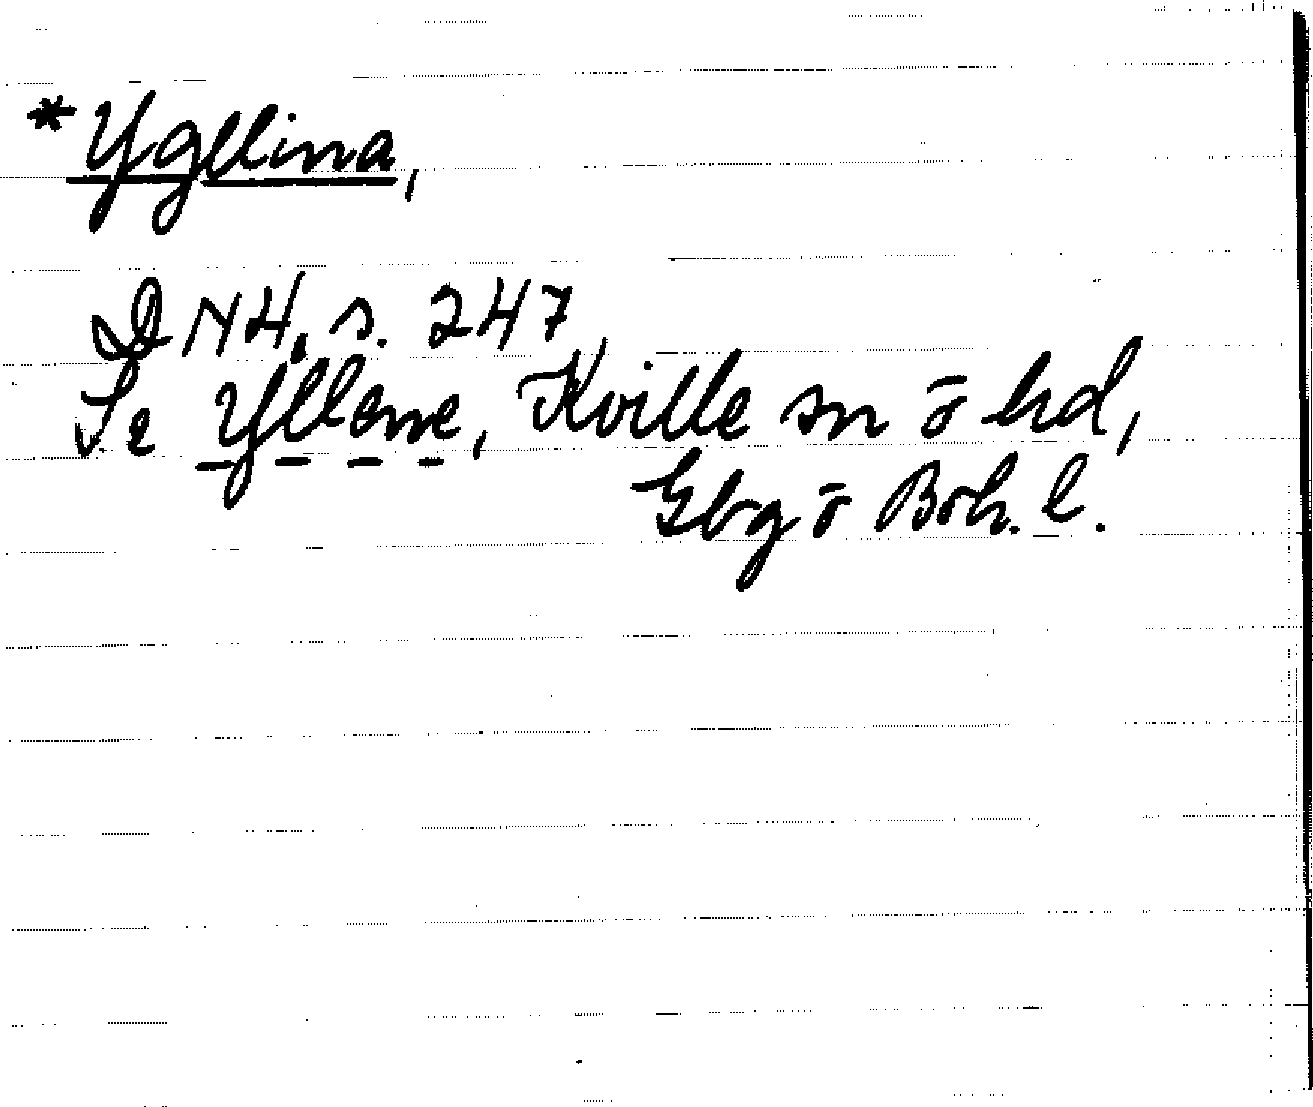 *Ygllina,
DN4, s. 247
Se Yllene, Kville sn o hd,
Gbg o Boh. l.